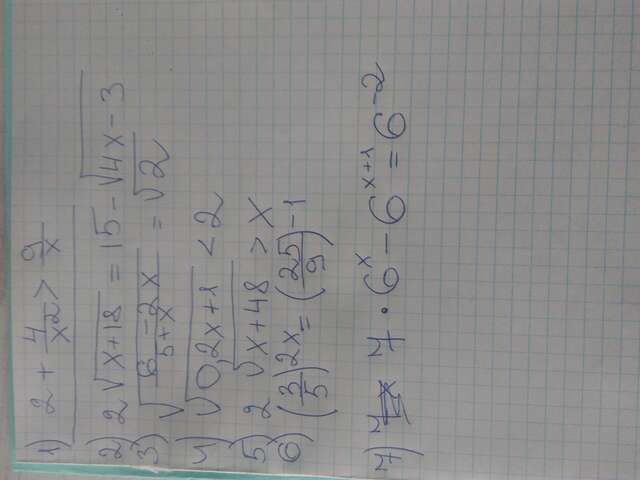 1) 2 + 4/x² > 9/x
2) 2√(x+18) = 15 - √(4x-3)
3) √((6-2x)/(5+x)) = √2
4) √(0,2x+1) < 2
5) 2√(x+48) > x
6) (3/5)^(2x) = (25/9)^(-1)
7) 7 · 6^x - 6^(x+1) = 6^(-2)